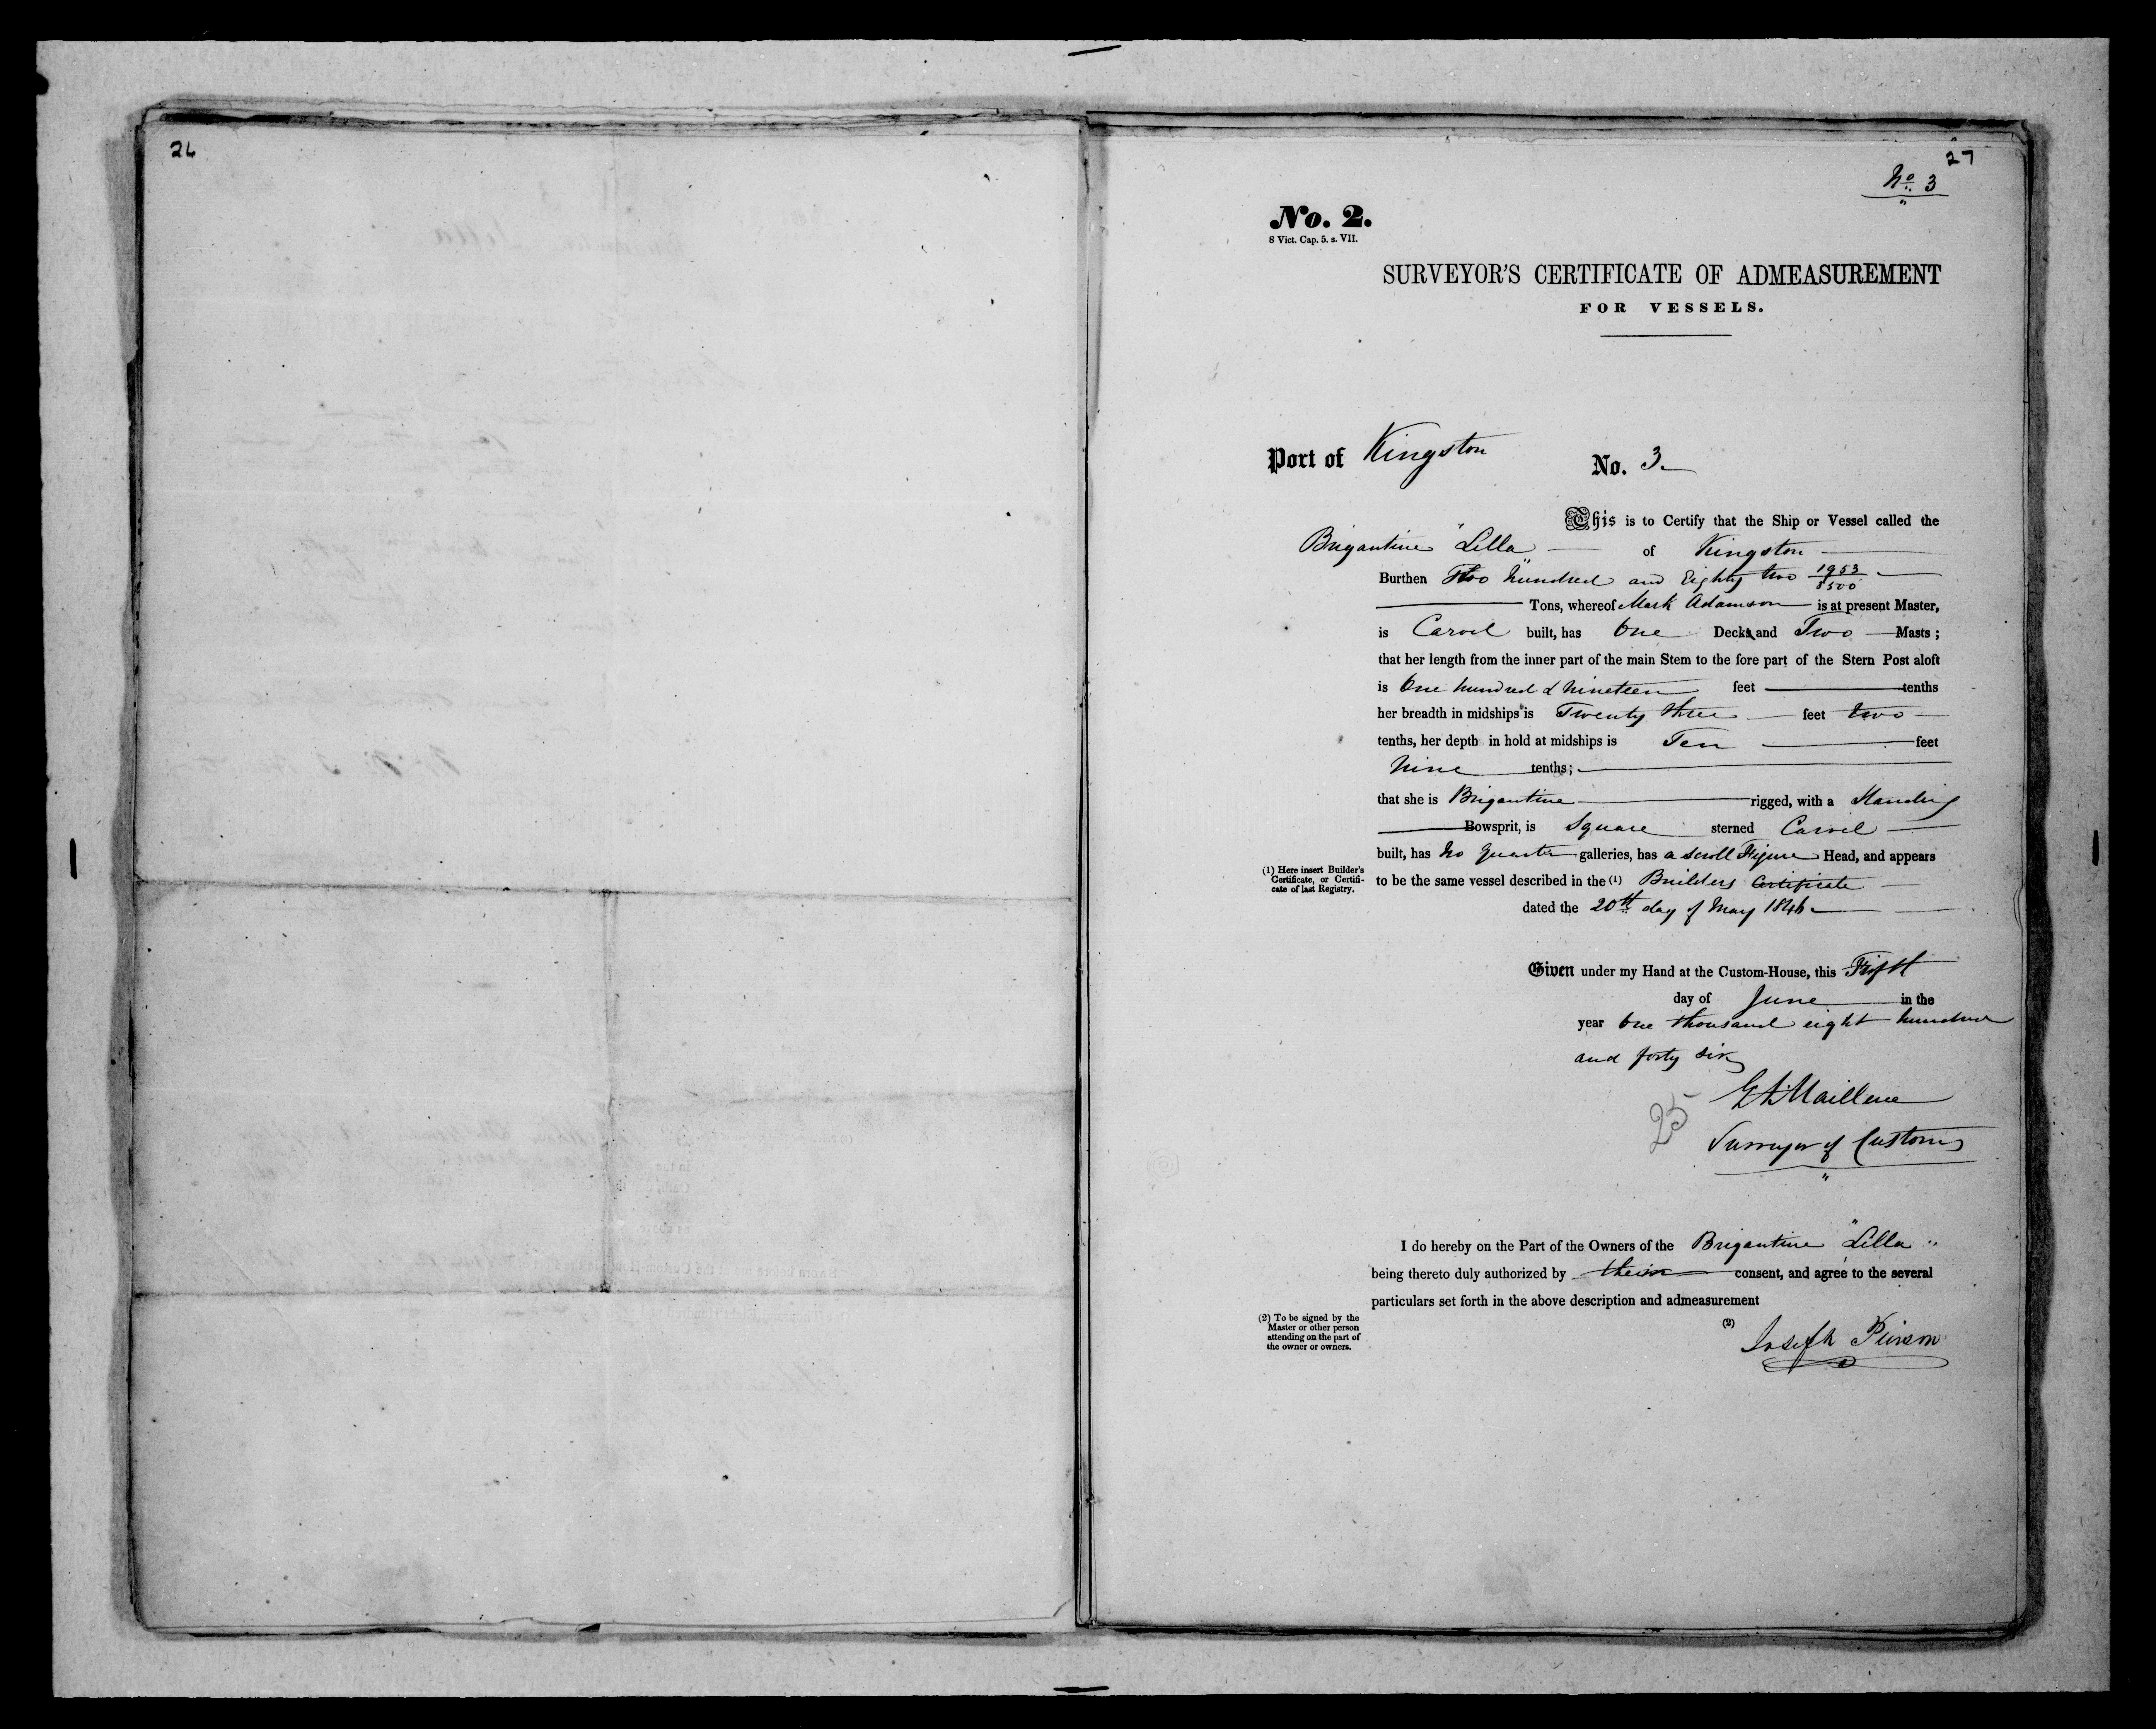 26
27
No. 3
No. 2.
8 Vict. Cap. 5. s. VII.
SURVEYOR'S CERTIFICATE OF ADMEASUREMENT
FOR VESSELS.
Port of Kingston No. 3
This is to Certify that the Ship or Vessel called the
Brigantine "Lilla" of Kingston
Burthen Two hundred and Eighty two 1953/3500
Tons, whereof Mark Adamson is at present Master,
is Carvel built, has One Deck and Two Masts;
that her length from the inner part of the main Stem to the fore part of the Stern Post aloft
is One hundred & Nineteen feet tenths
her breadth in midships is Twenty three feet two
tenths, her depth in hold at midships is Ten feet
Nine tenths;
that she is Brigantine rigged, with a Standing
Bowsprit, is Square sterned Carvel
built, has No Quarter galleries, has a Scroll Figure Head, and appears
(1) Here insert Builder's
Certificate, or Certifi-
cate of last Registry.
to be the same vessel described in the (1) Builders Certificate
dated the 20th day of May 1846
Given under my Hand at the Custom-House, this Fifth
day of June in the
year One thousand eight hundred
and forty Six
25
Surveyor of Customs
I do hereby on the Part of the Owners of the Brigantine "Lilla"
being thereto duly authorized by their consent, and agree to the several
particulars set forth in the above description and admeasurement
(2) To be signed by the
Master or other person
attending on the part of
the owner or owners.
(2)
Joseph Pierson